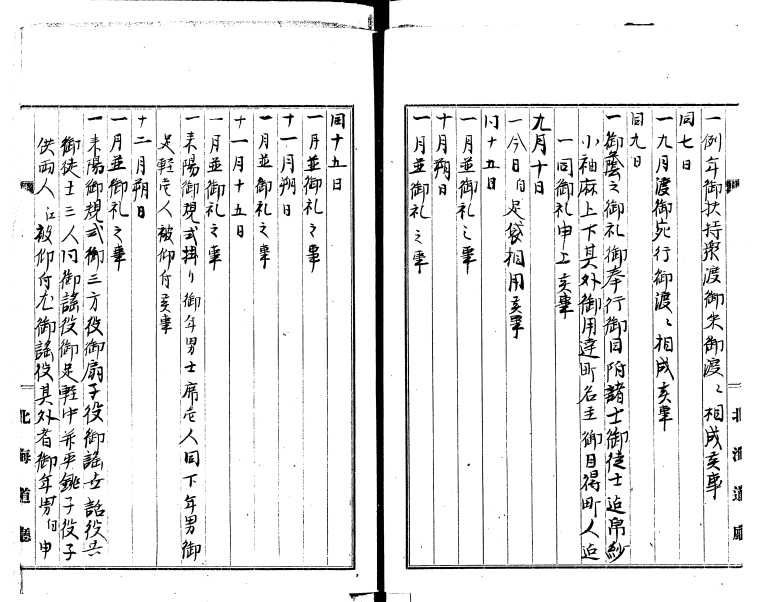 一例年御扶持聚渡御朱御渡ニ相成候事
同七日
一九月渡御宛行御渡ニ相成候事
同九日
一御蔭之御礼御奉行御目附諸士御徒士迄帛紗
小袖麻上下其外御用達町名主御目得町人迄
一同御礼申上候事
九月十日
一今日ゟ足袋相用候事
同十五日
一月並御礼之事
十月朔日
一月並御礼之事
同十五日
一月並御礼之事
十一月朔日
一月並御礼之事
十一月十五日
一月並御礼之事
一来陽御規式掛り御年男士席壱人同下年男御
足軽壱人被仰付候事
十二月朔日
一月並御礼之事
一来陽御規式御三方役御扇子役御謡世話役共
御徒士三人同御謡役御足軽中并平銚子役子
供両人江被仰付尤御謡役其外者御年男ゟ申
北海道廳
北海道廳